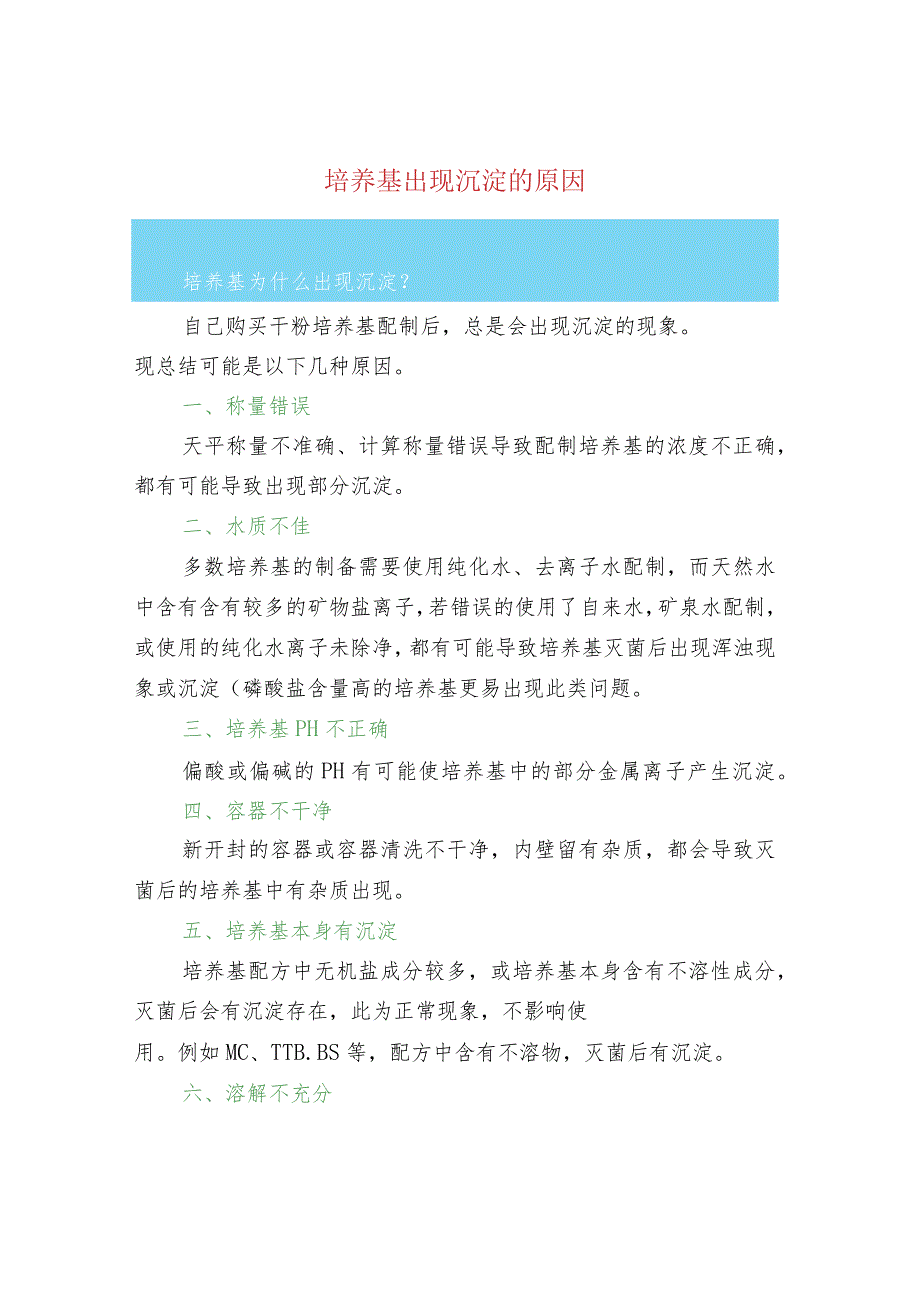 培养基出现沉淀的原因
培养基为什么出现沉淀？
自己购买干粉培养基配制后，总是会出现沉淀的现象。
现总结可能是以下几种原因。
一、称量错误
天平称量不准确、计算称量错误导致配制培养基的浓度不正确，
都有可能导致出现部分沉淀。
二、水质不佳
多数培养基的制备需要使用纯化水、去离子水配制，而天然水
中含有含有较多的矿物盐离子，若错误的使用了自来水，矿泉水配制，
或使用的纯化水离子未除净，都有可能导致培养基灭菌后出现浑浊现
象或沉淀（磷酸盐含量高的培养基更易出现此类问题。
三、培养基 PH 不正确
偏酸或偏碱的 PH 有可能使培养基中的部分金属离子产生沉淀。
四、容器不干净
新开封的容器或容器清洗不干净，内壁留有杂质，都会导致灭
菌后的培养基中有杂质出现。
五、培养基本身有沉淀
培养基配方中无机盐成分较多，或培养基本身含有不溶性成分，
灭菌后会有沉淀存在，此为正常现象，不影响使
用。例如 MC、TTB.BS 等，配方中含有不溶物，灭菌后有沉淀。
六、溶解不充分